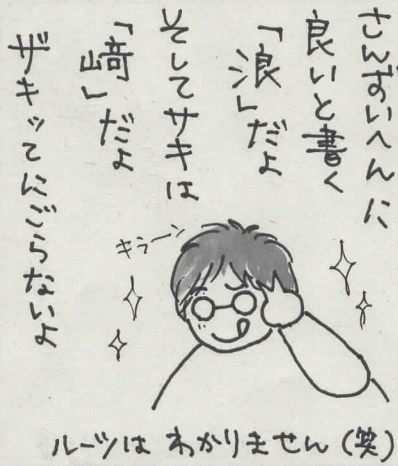 さんずいへんに
良いと書く
「浪」だよ
そしてサキは
「﨑」だよ
ザキッてにごらないよ
キラーン
ルーツは わかりません(笑)